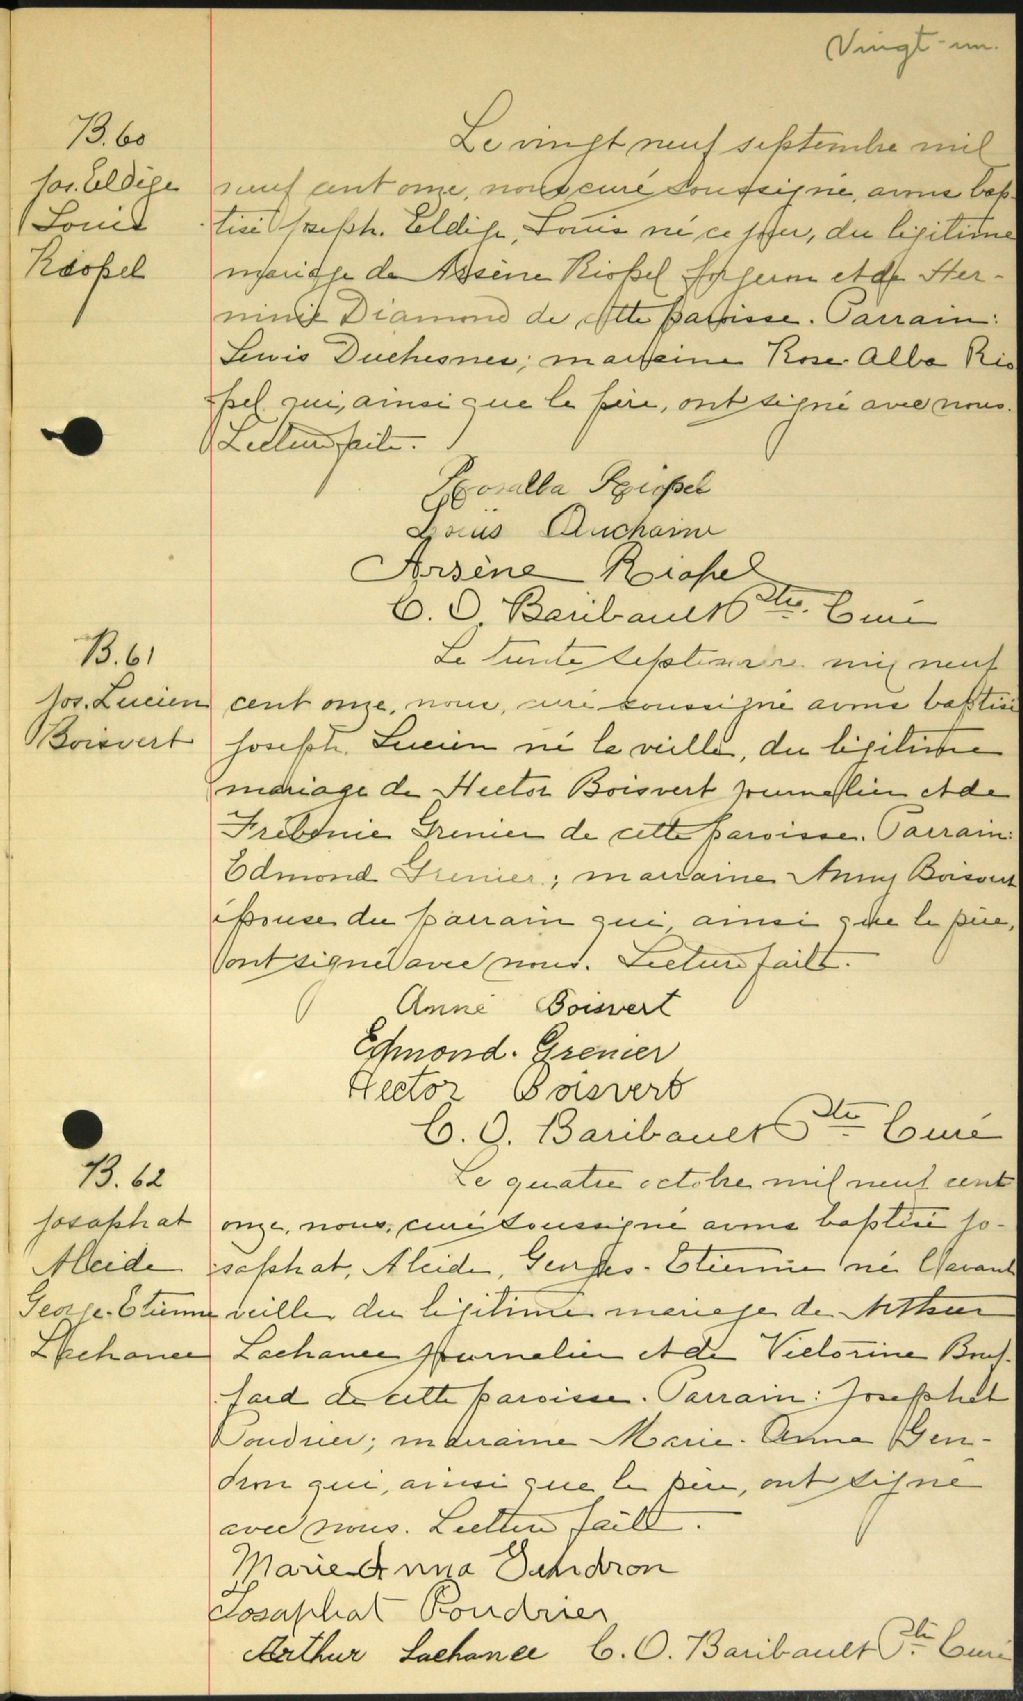 Vingt-un.
B.60
Jos. Eldège
Louis
Riopel
Le vingt neuf septembre mil
neuf cent onze, nous curé soussigné, avons bap-
tisé Joseph. Eldège, Louis né ce jour, du légitime
mariage de Arsène Riopel forgeron et de Her-
minie Diamond de cette paroisse. Parrain:
Lewis Duchesnes; marraine Rose-Alba Rio
pel qui, ainsi que le père, ont signé avec nous.
Lecture faite.
Rosalba Riopel
Louis Duchaine
Arsène Riopel
C. O. Baribault Ptre. Curé
B.61
Jos. Lucien
Boisvert
Le trente septembre mil neuf
cent onze, nous, curé soussigné avons baptisé
Joseph. Lucien né la veille, du légitime
mariage de Hector Boisvert journalier et de
Grenier de cette paroisse. Parrain:
Edmond Grenier; marraine Anny Boisvert
épouse du parrain qui, ainsi que le père,
ont signé avec nous. Lecture faite.
Anné Boisvert
Edmond. Grenier
Hector Boisvert
C. O. Baribault Ptre Curé
B. 62
Josaphat
Alcide
George-Etienne
Lachance
Le quatre octobre mil neuf cent
onze, nous, curé soussigné avons baptisé Jo-
saphat, Alcide, Georges-Etienne né l'avant
veille du légitime mariage de Arthur
Lachance journalier et de Victorine Bouf-
fard de cette paroisse. Parrain: Josaphat
Poudrier; marraine Marie-Anna Gen-
dron qui, ainsi que le père, ont signé
avec nous. Lecture faite.
Marie Anna Gendron
Josaphat Poudrier
Arthur Lachance C. O. Baribault Ptre Curé